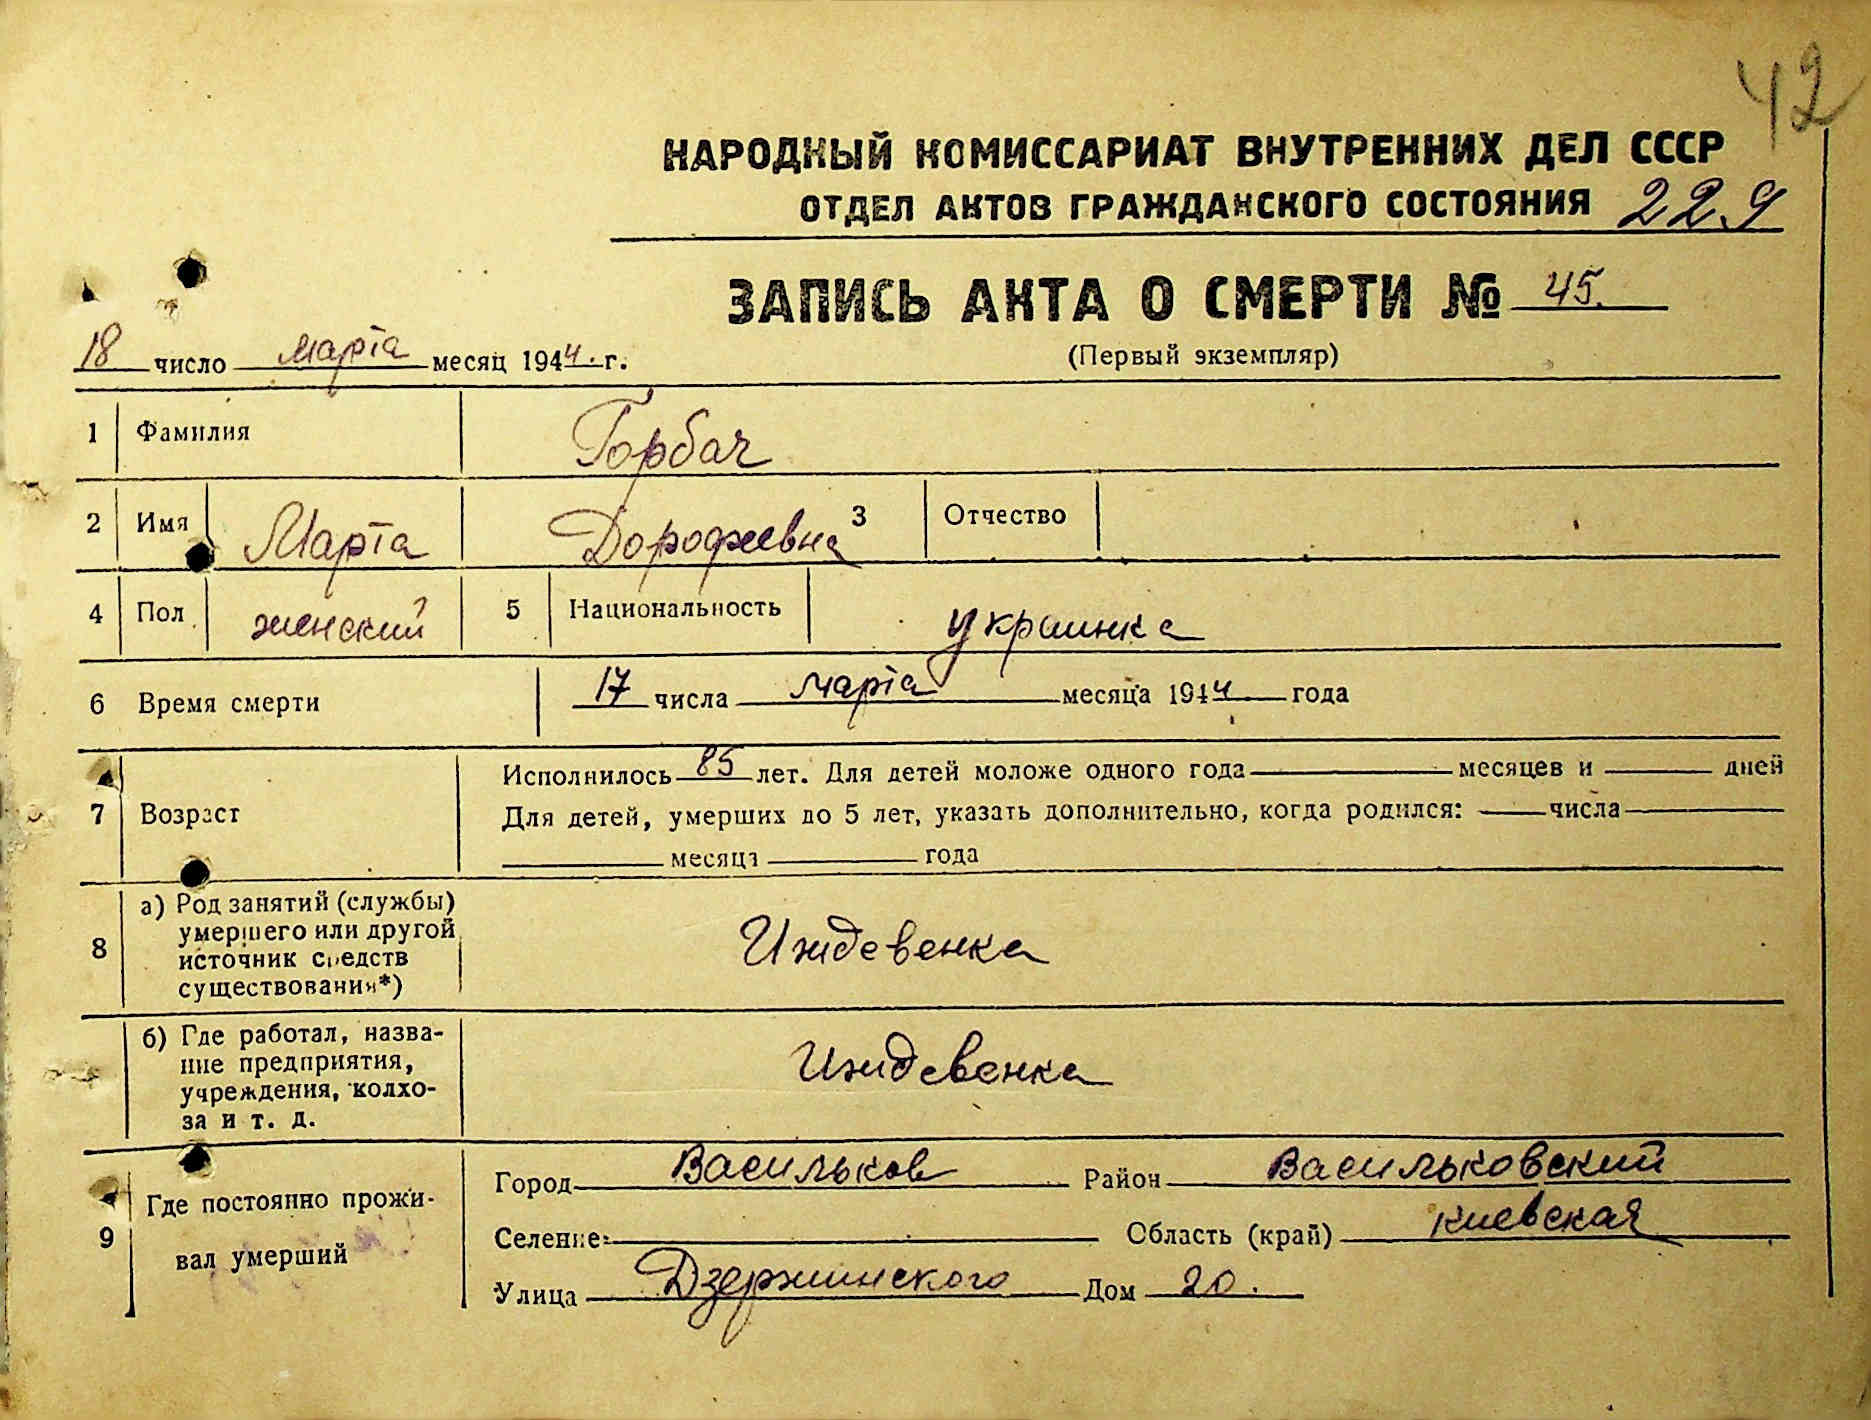 42
НАРОДНЫЙ КОМИССАРИАТ ВНУТРЕННИХ ДЕЛ СССР
ОТДЕЛ АКТОВ ГРАЖДАНСКОГО СОСТОЯНИЯ 22.9
ЗАПИСЬ АКТА О СМЕРТИ № 45.
18 число марта месяц 1944. г.
(Первый экземпляр)
1 Фамилия Горбач
2 Имя Марта Дорофеевна 3 Отчество
4 Пол женский 5 Национальность украинка
6 Время смерти 17 числа марта месяца 1944 года
Исполнилось 85 лет. Для детей моложе одного года месяцев и дней
7 Возраст Для детей, умерших до 5 лет, указать дополнительно, когда родился: числа
месяца года
а) Род занятий (службы)
умершего или другой
8 источник средств Иждевенка
существования*)
б) Где работал, назва-
ние предприятия, Иждевенка
учреждения, колхо-
за и т. д.
Город Васильков Район Васильковский
9 Где постоянно прожи-
вал умерший
Селение Область (край) киевская
Улица Дзержинского Дом 20.